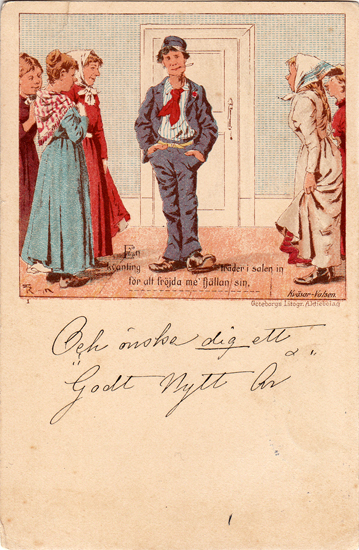 En
kvanting träder i salen in
för att fröjda me' fjällan sin,
R
1
Kväsar-Valsen.
Göteborgs Litogr. Aktiebolag
Och önske dig ett
Godt Nytt År